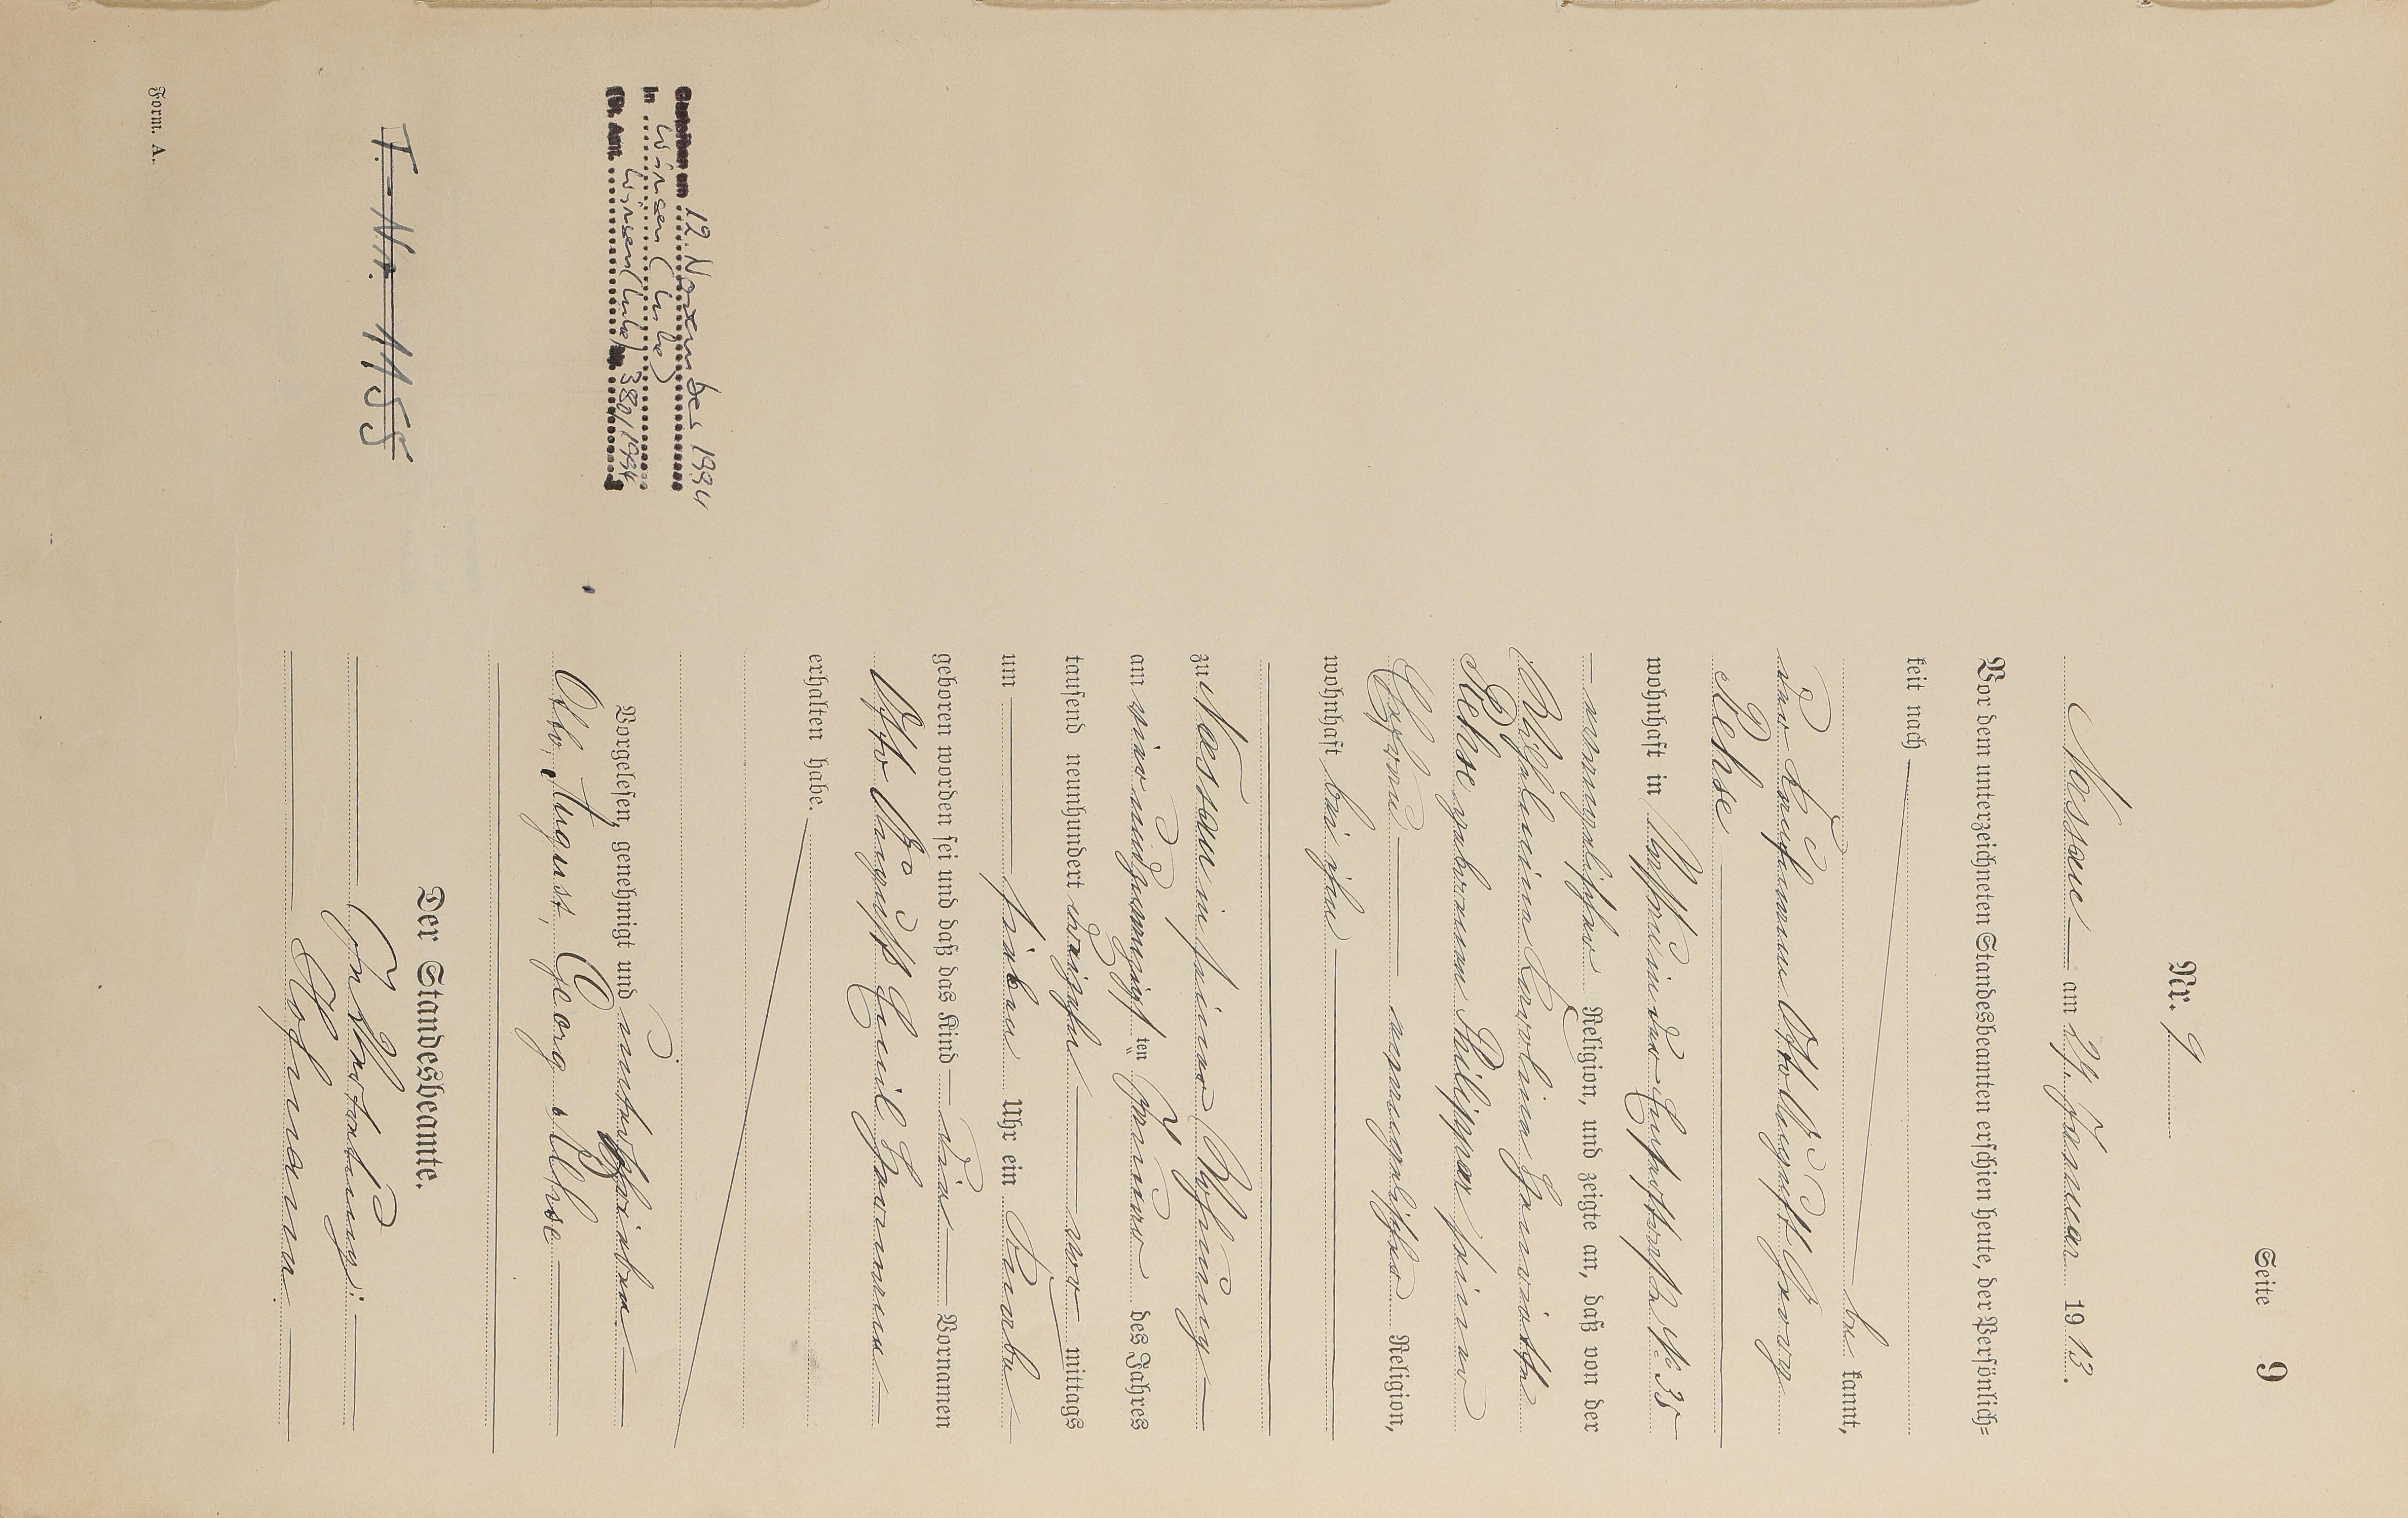 Seite 9
Nr. 9
Nassau am 29. Januar 1913.
Vor dem unterzeichneten Standesbeamten erschien heute, der Persönlich-
keit nach
be kannt,
der Kaufmann Otto August Georg
Rehse
wohnhaft in Nassau in der Emserstraße No 35
evangelischer Religion, und zeigte an, daß von der
Wilhelmine Karoline Henriette
Rehse geborenen Philippar seiner
Ehefrau evangelischer Religion,
wohnhaft bei ihm
zu Nassau in seiner Wohnung
am vierundzwanzigsten Januar des Jahres
tausend neunhundert dreizehn vor mittags
um sieben Uhr ein Knabe
geboren worden sei und daß das Kind die Vornamen
Otto August Emil Hermann
erhalten habe.
Vorgelesen, genehmigt und unterschrieben
Otto, August, Georg Rehse
Der Standesbeamte.
In Vertretung:
Hofmann
Gestorben am 12. November 1994
in Winsen (Luhe)
(St. Amt Winsen (Luhe) Nr. 380/1994)
T. Nr. 1155
Form. A.